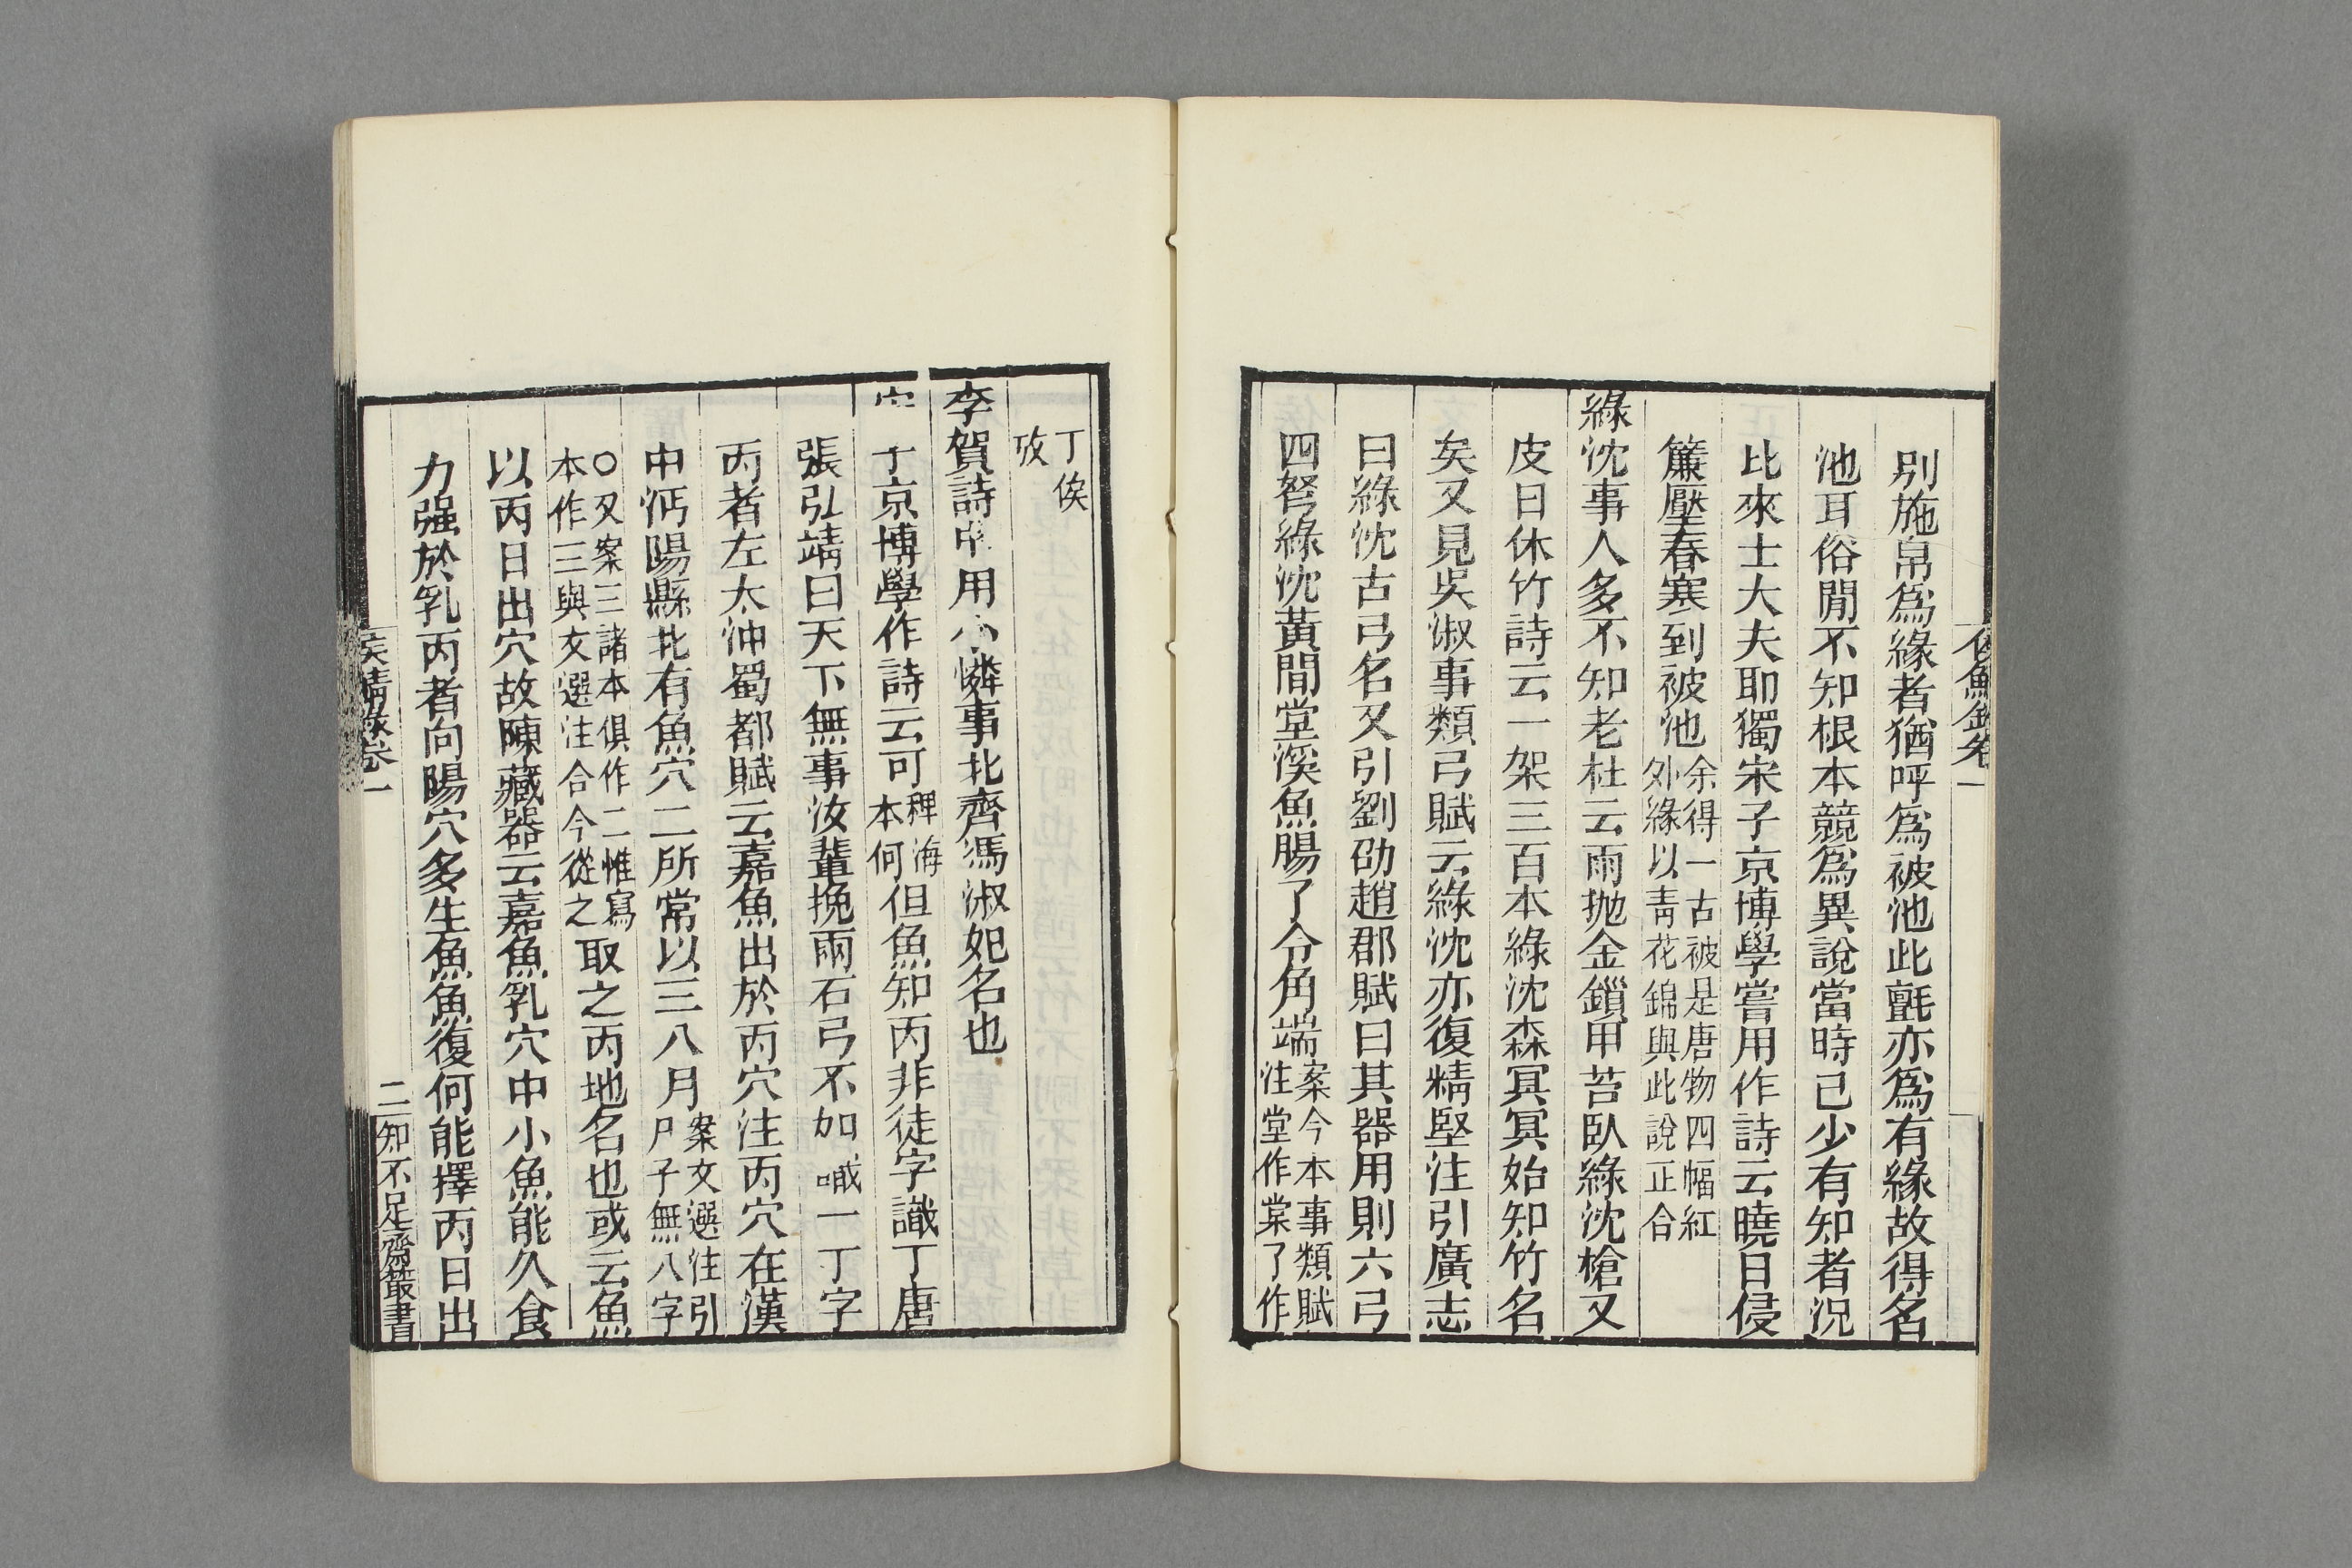 別施帛爲緣者猶呼爲被池此氈亦爲有緣故得名
池耳俗閒不知根本競爲異說當時已少有知者況
比來士大夫耶獨宋子京博學嘗用作詩云曉日侵
簾壓春寒到被池余得一古被是唐物四幅紅
外緣以靑花錦與此說正合
綠沈事人多不知老杜云雨拋金鎖甲苔臥綠沈槍又
皮日休竹詩云一架三百本綠沈森冥冥始知竹名
矣又見吳淑事類弓賦云綠沈亦復精堅注引廣志
曰綠沈古弓名又引劉劭趙郡賦曰其器用則六弓
四弩綠沈黃間堂溪魚腸了令角端案今本事類賦
注堂作棠了作
丁俟
攷
李賀詩中用小憐事北齊馮淑妃名也
宋子京博學作詩云可稗海
本何但魚知丙非徒字識丁唐
張弘靖曰天下無事汝輩挽兩石弓不如識一丁字
丙者左太沖蜀都賦云嘉魚出於丙穴注丙穴在漢
中沔陽縣北有魚穴二所常以三八月案文選注引
尸子無八字
○又案三諸本俱作二惟寫
本作三與文選注合今從之取之丙地名也或云魚
以丙日出穴故陳藏器云嘉魚乳穴中小魚能久食
力强於乳丙者向陽穴多生魚魚復何能擇丙日出
侯鯖錄卷一
二
知不足齋叢書